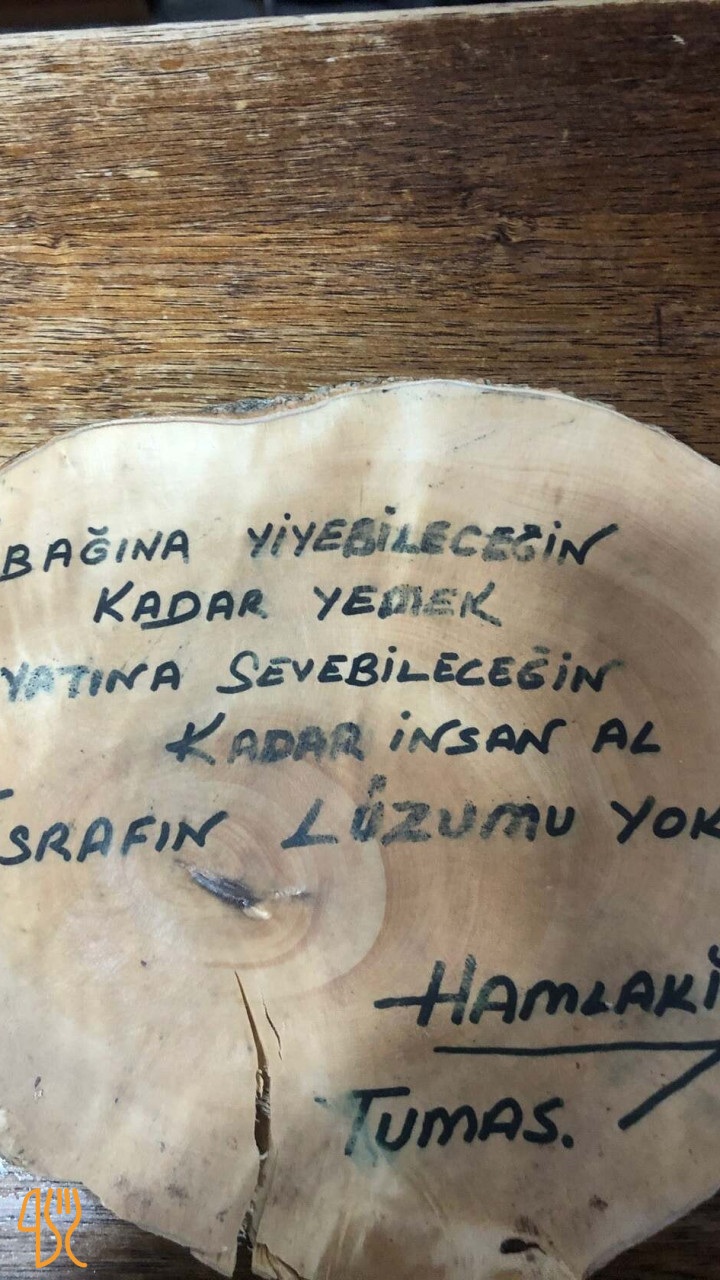 BAĞINA YİYEBİLECEĞİN
KADAR YEMEK
YATINA SEVEBİLECEĞİN
KADAR İNSAN AL
İSRAFIN LÜZUMU YOK
HAMLAKİ
TUMAS.